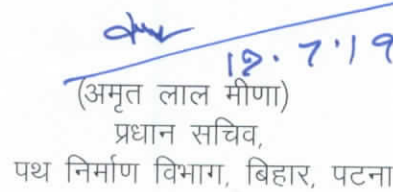 12.7.19
(अमृत लाल मीणा)
प्रधान सचिव,
पथ निर्माण विभाग, बिहार, पटना